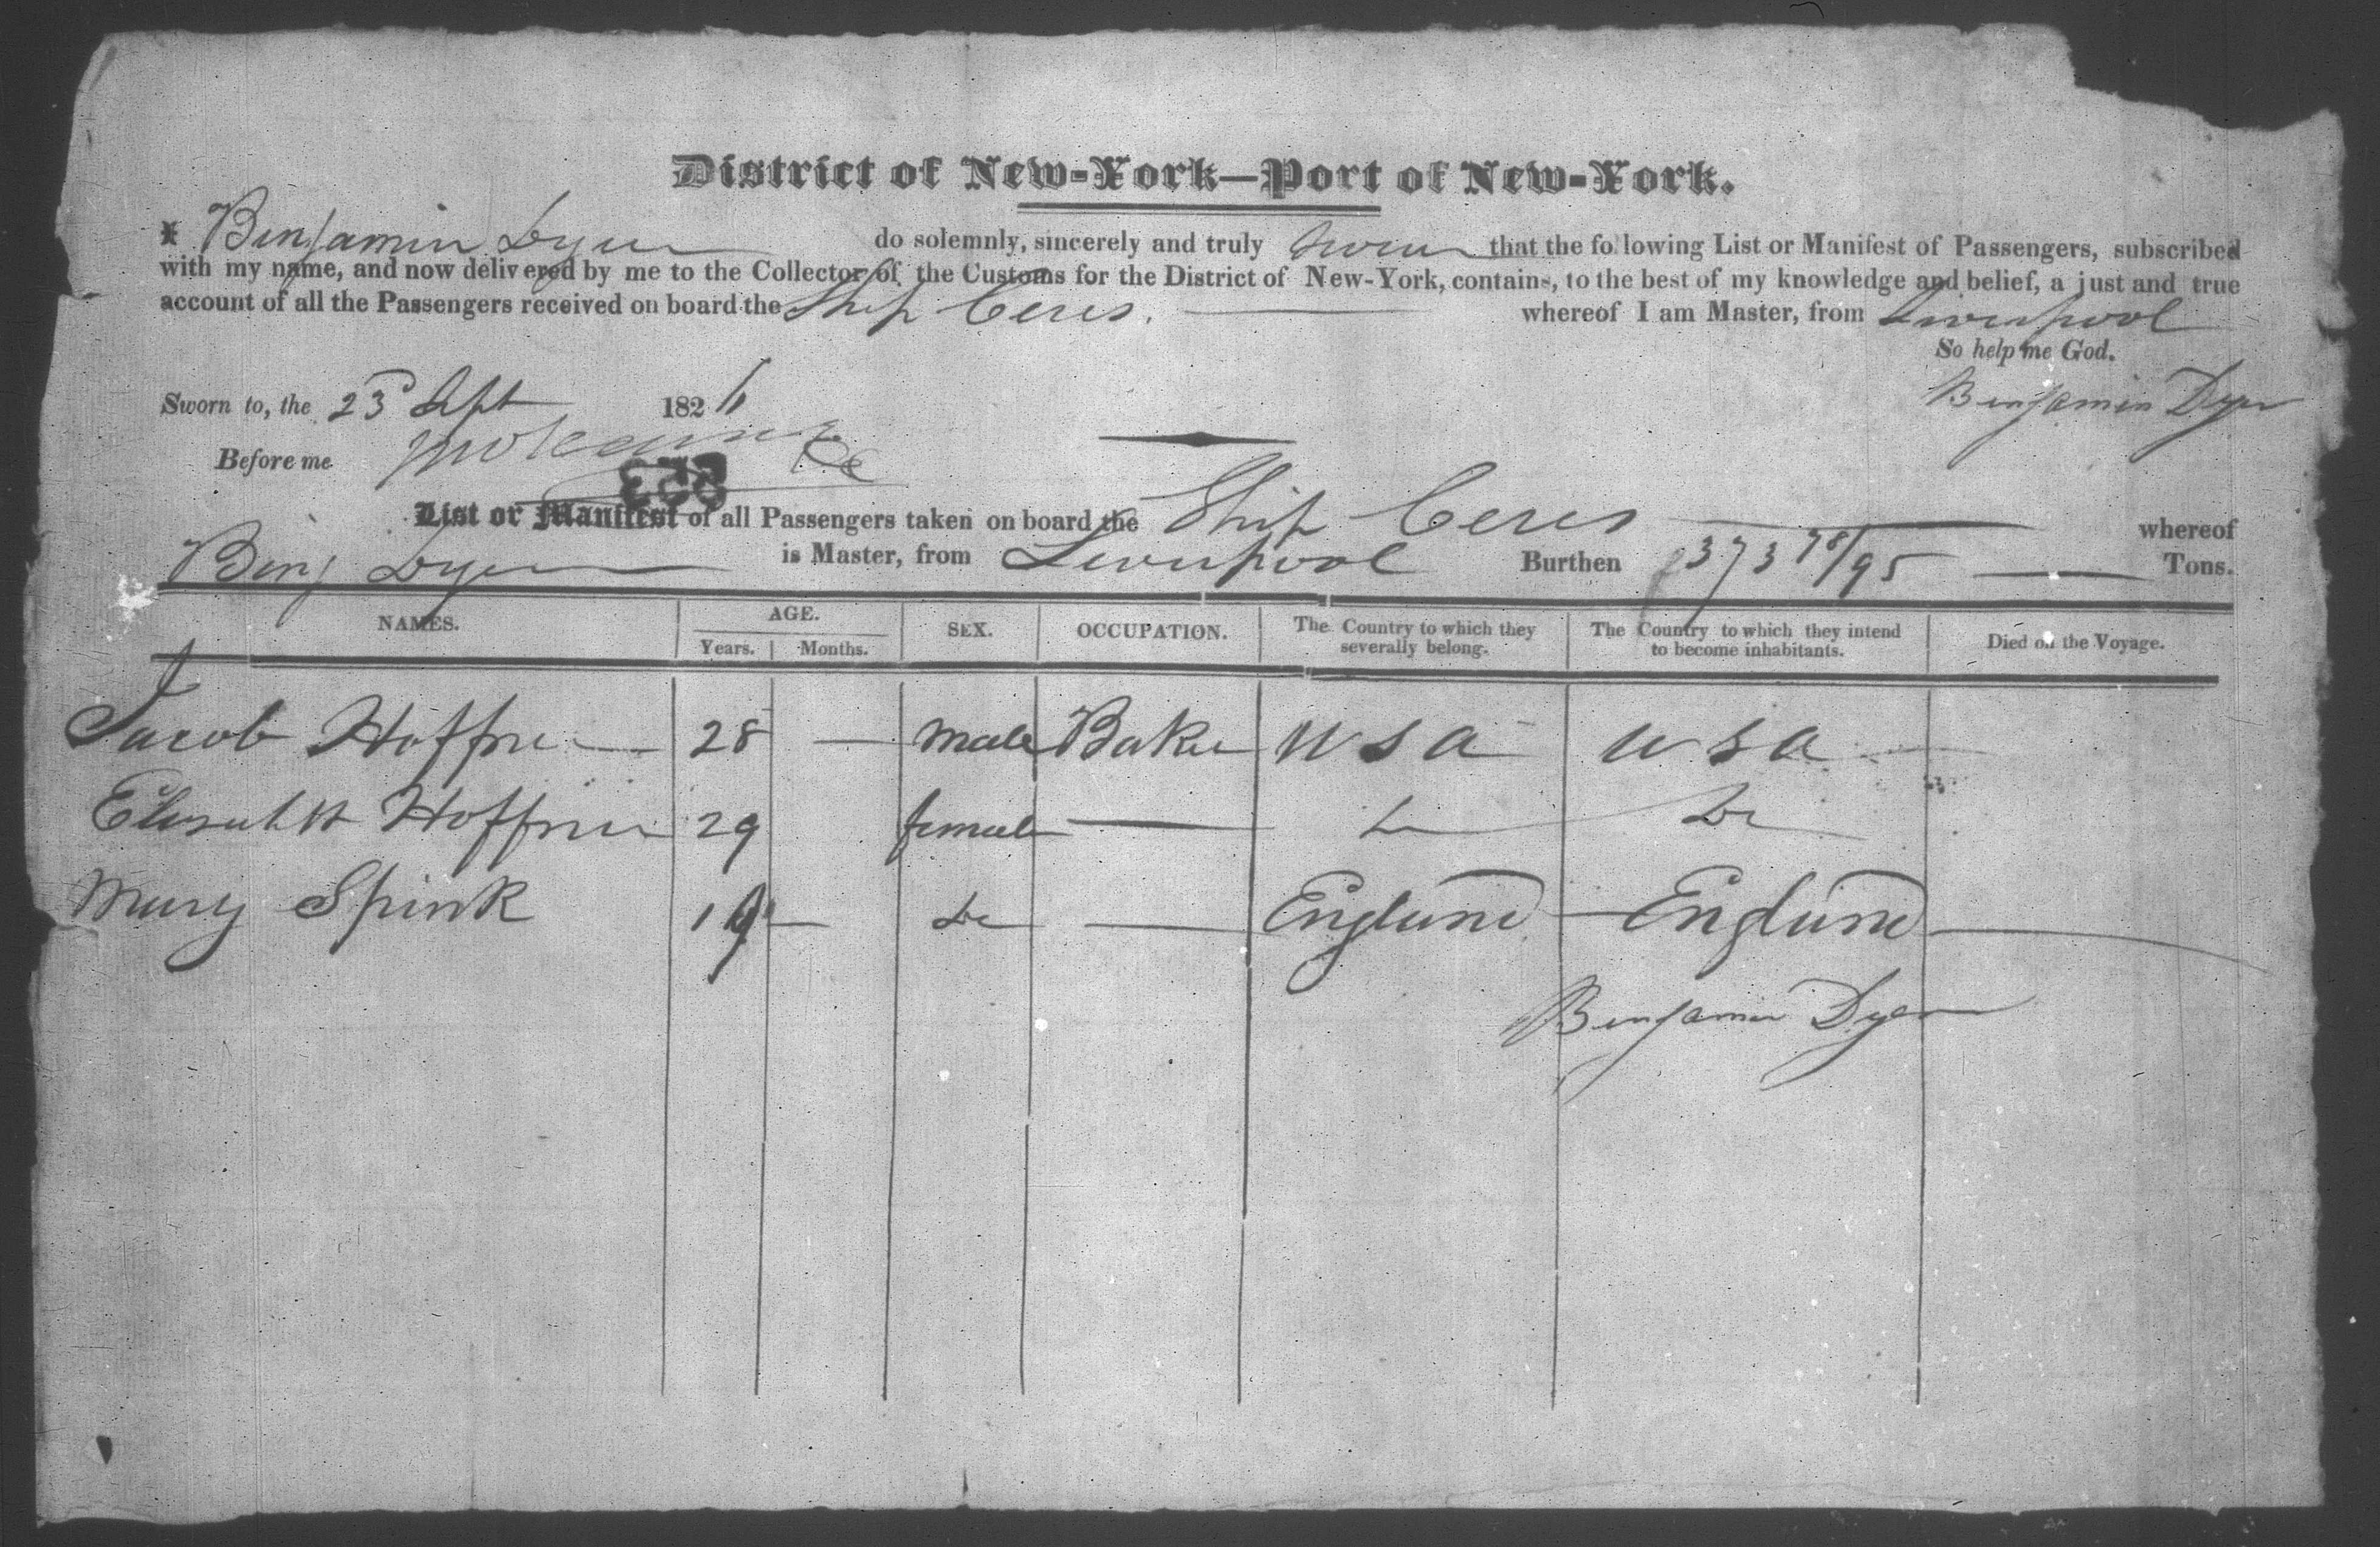 District of New-York—Port of New-York.
I Benjamin Dyer do solemnly, sincerely and truly swear that the following List or Manifest of Passengers, subscribed
with my name, and now delivered by me to the Collector of the Customs for the District of New-York, contains, to the best of my knowledge and belief, a just and true
account of all the Passengers received on board the Ship Ceres. whereof I am Master, from Liverpool
So help me God.
Sworn to, the 23 Sept 1826 Benjamin Dyer
Before me
List or Manifest of all Passengers taken on board the Ship Ceres whereof
Benj Dyer is Master, from Liverpool Burthen 373 78/95 Tons.
NAMES. AGE. SEX. OCCUPATION. The Country to which they severally belong. The Country to which they intend to become inhabitants. Died on the Voyage.
Years. Months.
Jacob Hoffner 28 — male Baker U S A U S A
Elizabeth Hoffner 29 female — Do Do
Mary Spink 19 — Do — England England
Benjamin Dyer